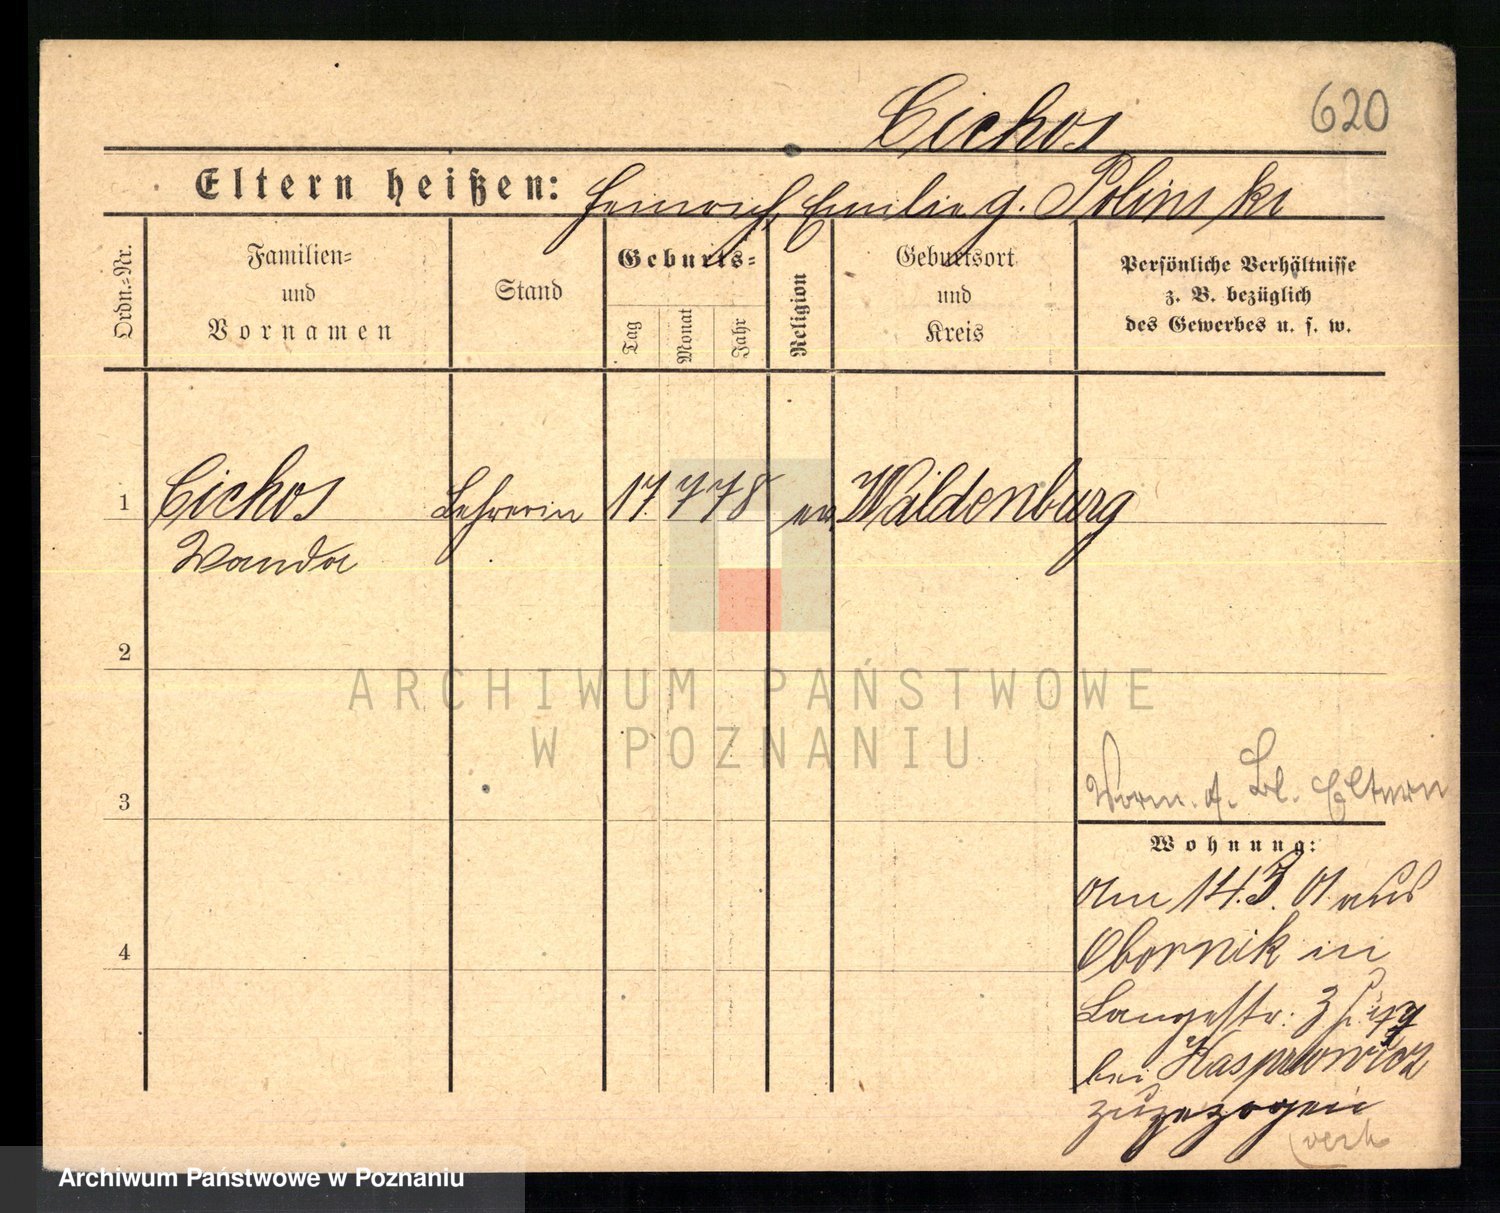 Cichos
620
Eltern heißen: Heinrich, Emilie g. Polinski
Ordn.-Nr.
Familien-
und
Vornamen
Stand
Geburts-
Tag
Monat
Jahr
Religion
Geburtsort
und
Kreis
Persönliche Verhältnisse
z. B. bezüglich
des Gewerbes u. s. w.
1 Cichos Lehrerin 17. 7 78 ev. Waldenburg
Wanda
2
ARCHIWUM PAŃSTWOWE
W POZNANIU
3
Vorm. a. Bl. Eltern
Wohnung:
am 14.3.01 aus
Obornik in
4
Langestr. 3
bei Kasprowicz
zugezogen
verh
Archiwum Państwowe w Poznaniu